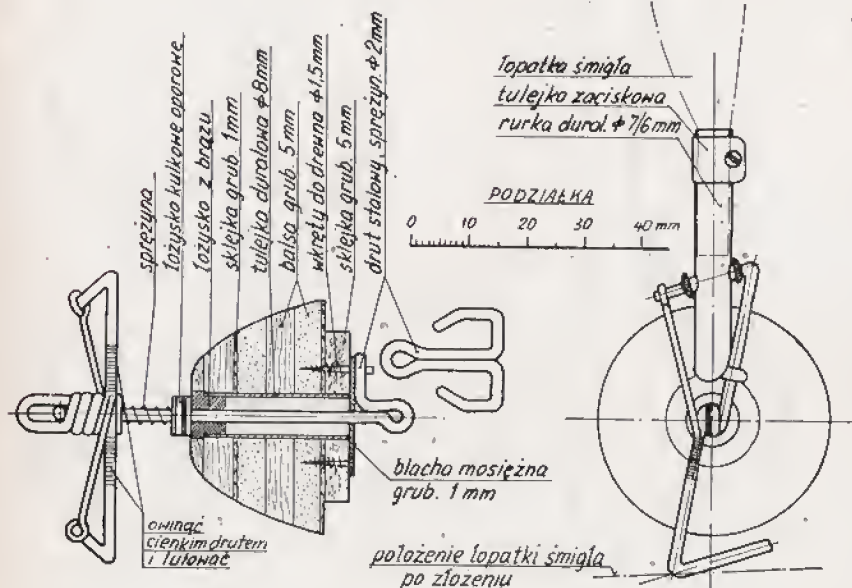 sprężyna
łożysko kulkowe oporowe
łożysko z brązu
sklejka grub. 1mm
tulejka duralowa ϕ8mm
balsa grub. 5 mm
wkręty do drewna ϕ1,5mm
sklejka grub. 5 mm
drut stalowy, sprężyn. ϕ2mm
łopatka śmigła
tulejka zaciskowa
rurka dural. ϕ7/6mm
PODZIAŁKA
0 10 20 30 40 mm
blacha mosiężna
grub. 1 mm
owinąć
cienkim drutem
i lutować
położenie łopatki śmigła
po złożeniu